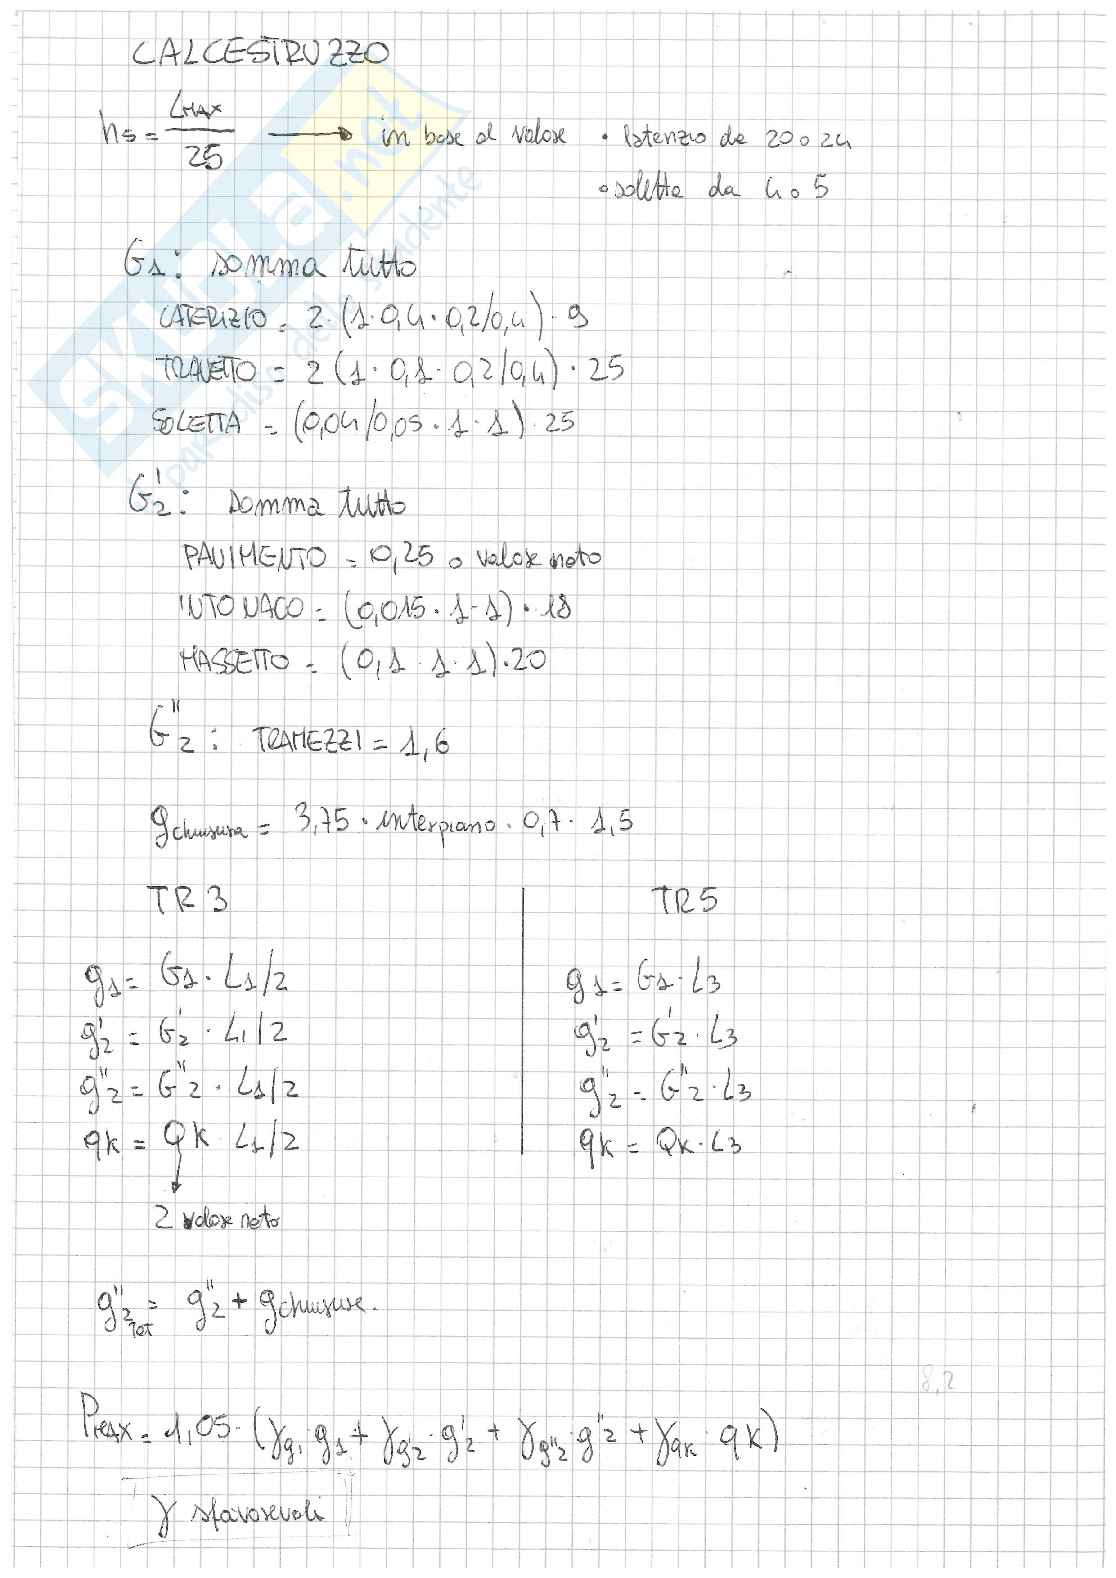 CALCESTRUZZO
hs = LMAX/25 → in base al valore • laterizio da 20 o 24
• soletta da 4 o 5
G1: somma tutto
LATERIZIO = 2·(1·0,4·0,2/0,4)·9
TRAVETTO = 2(1·0,1·0,2/0,4)·25
SOLETTA = (0,04/0,05·1·1)·25
G2': somma tutto
PAVIMENTO = 0,25 o valore noto
INTONACO = (0,015·1·1)·18
MASSETTO = (0,1·1·1)·20
G2'': TRAMEZZI = 1,6
gchiusura = 3,75·interpiano·0,7·1,5
TR3
g1 = G1·L1/2
g2' = G2'·L1/2
g2'' = G2''·L1/2
qk = Qk·L1/2
↓
2 valore noto
TR5
g1 = G1·L3
g2' = G2'·L3
g2'' = G2''·L3
qk = Qk·L3
g2''Tot = g2'' + gchiusure.
8,2
PMAX = 1,05·(γg1·g1 + γg2'·g2' + γg2''·g2'' + γqk·qk)
γ sfavorevoli
SKUOLA.net
paradiso dello studente